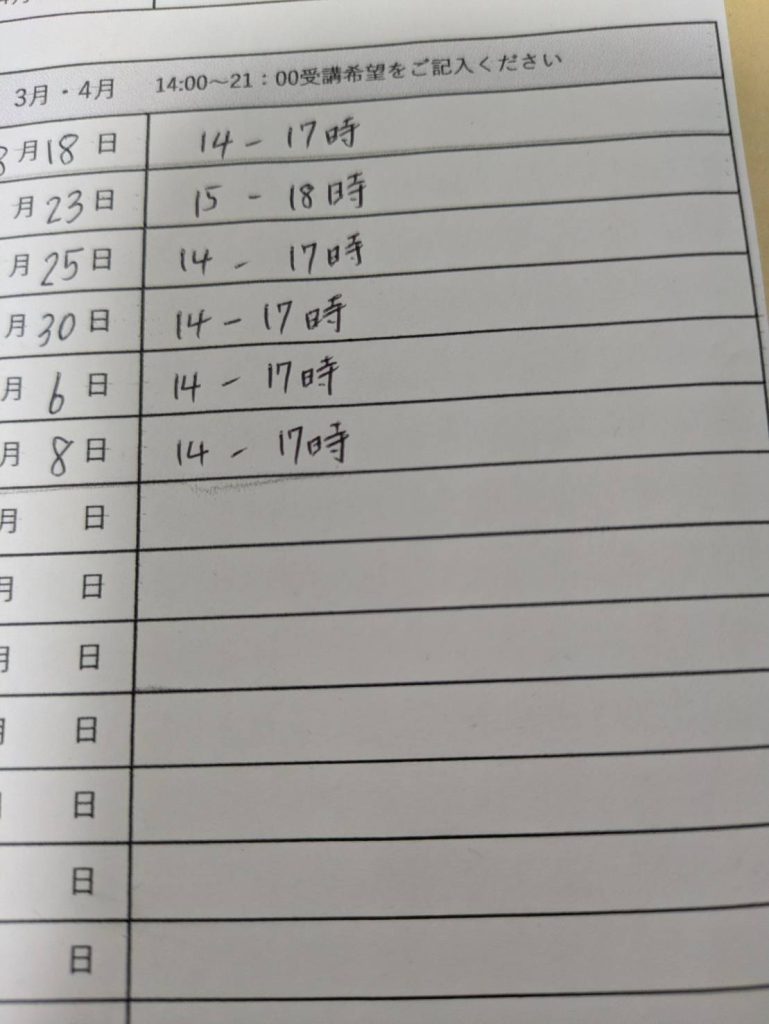 3月・4月 14:00〜21：00受講希望をご記入ください
3月18日 14 - 17時
月23日 15 - 18時
月25日 14 - 17時
月30日 14 - 17時
月 6日 14 - 17時
月 8日 14 - 17時
月 日
月 日
月 日
月 日
日
日
日